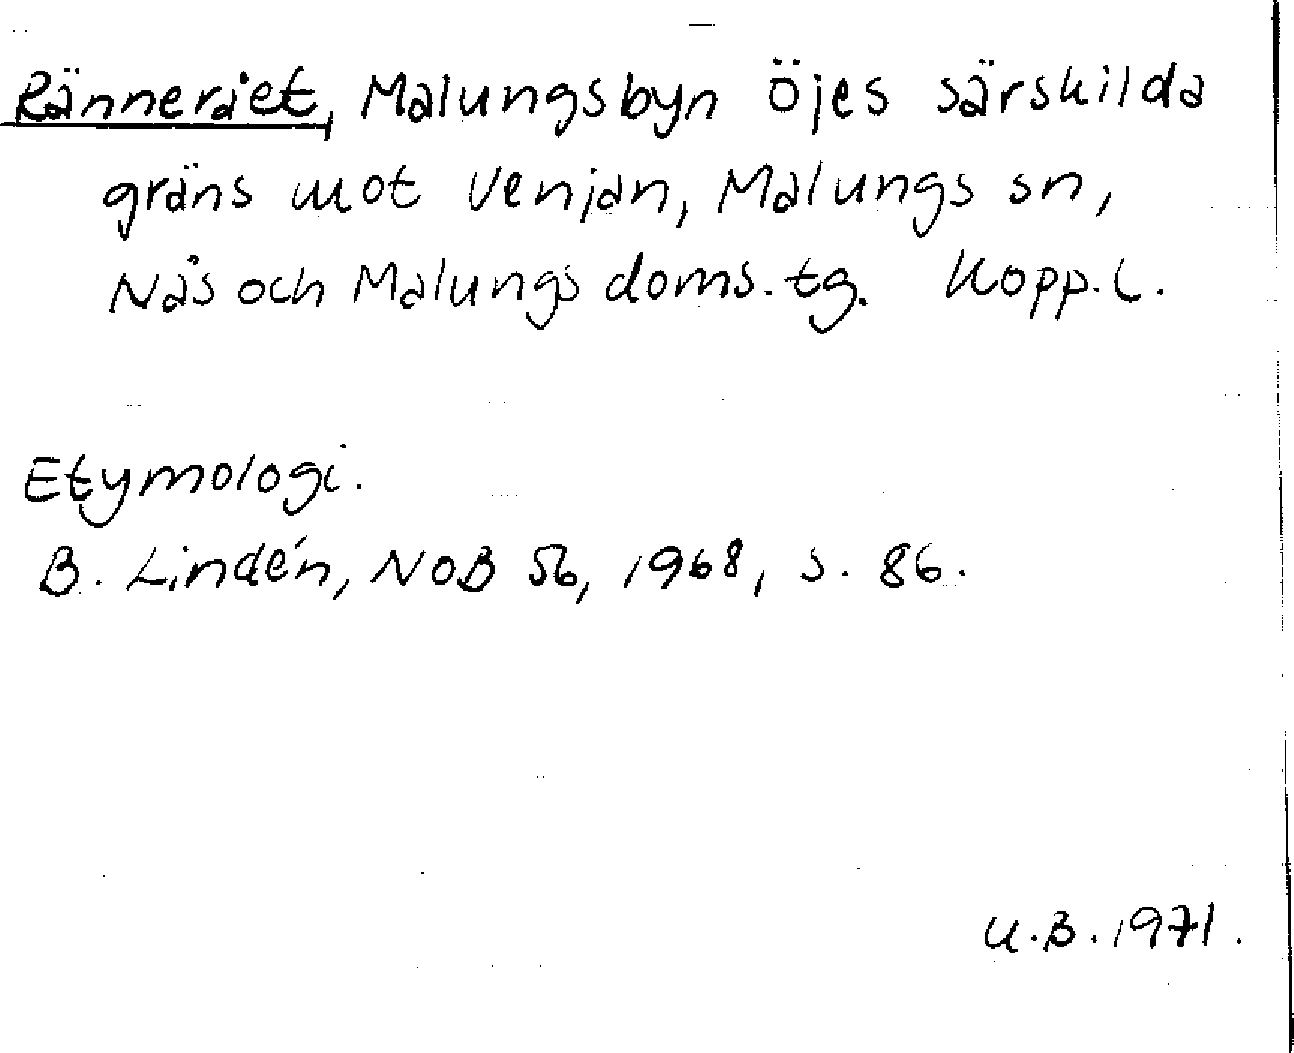 Rännerået, Malungsbyn Öjes särskilda
gräns mot Venjan, Malungs sn,
Nås och Malungs doms. tg. Kopp. l.
Etymologi.
B. Lindén, NoB 56, 1968, s. 86.
U.B. 1971.